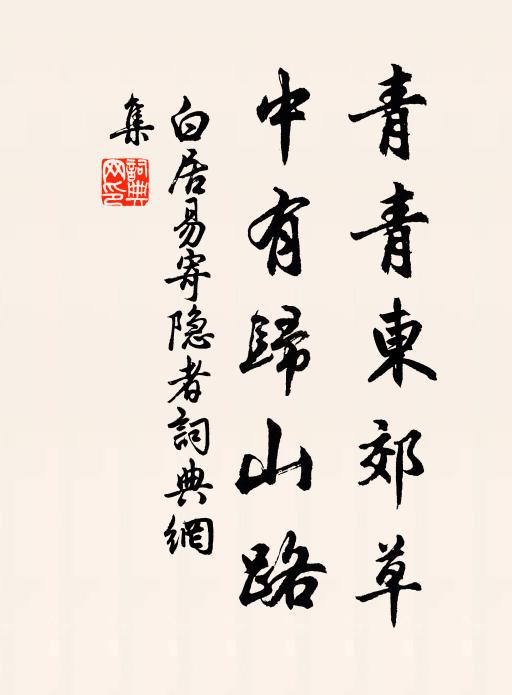 青青東郊草
中有歸山路
白居易寄隐者詞典網
集
詞典網印